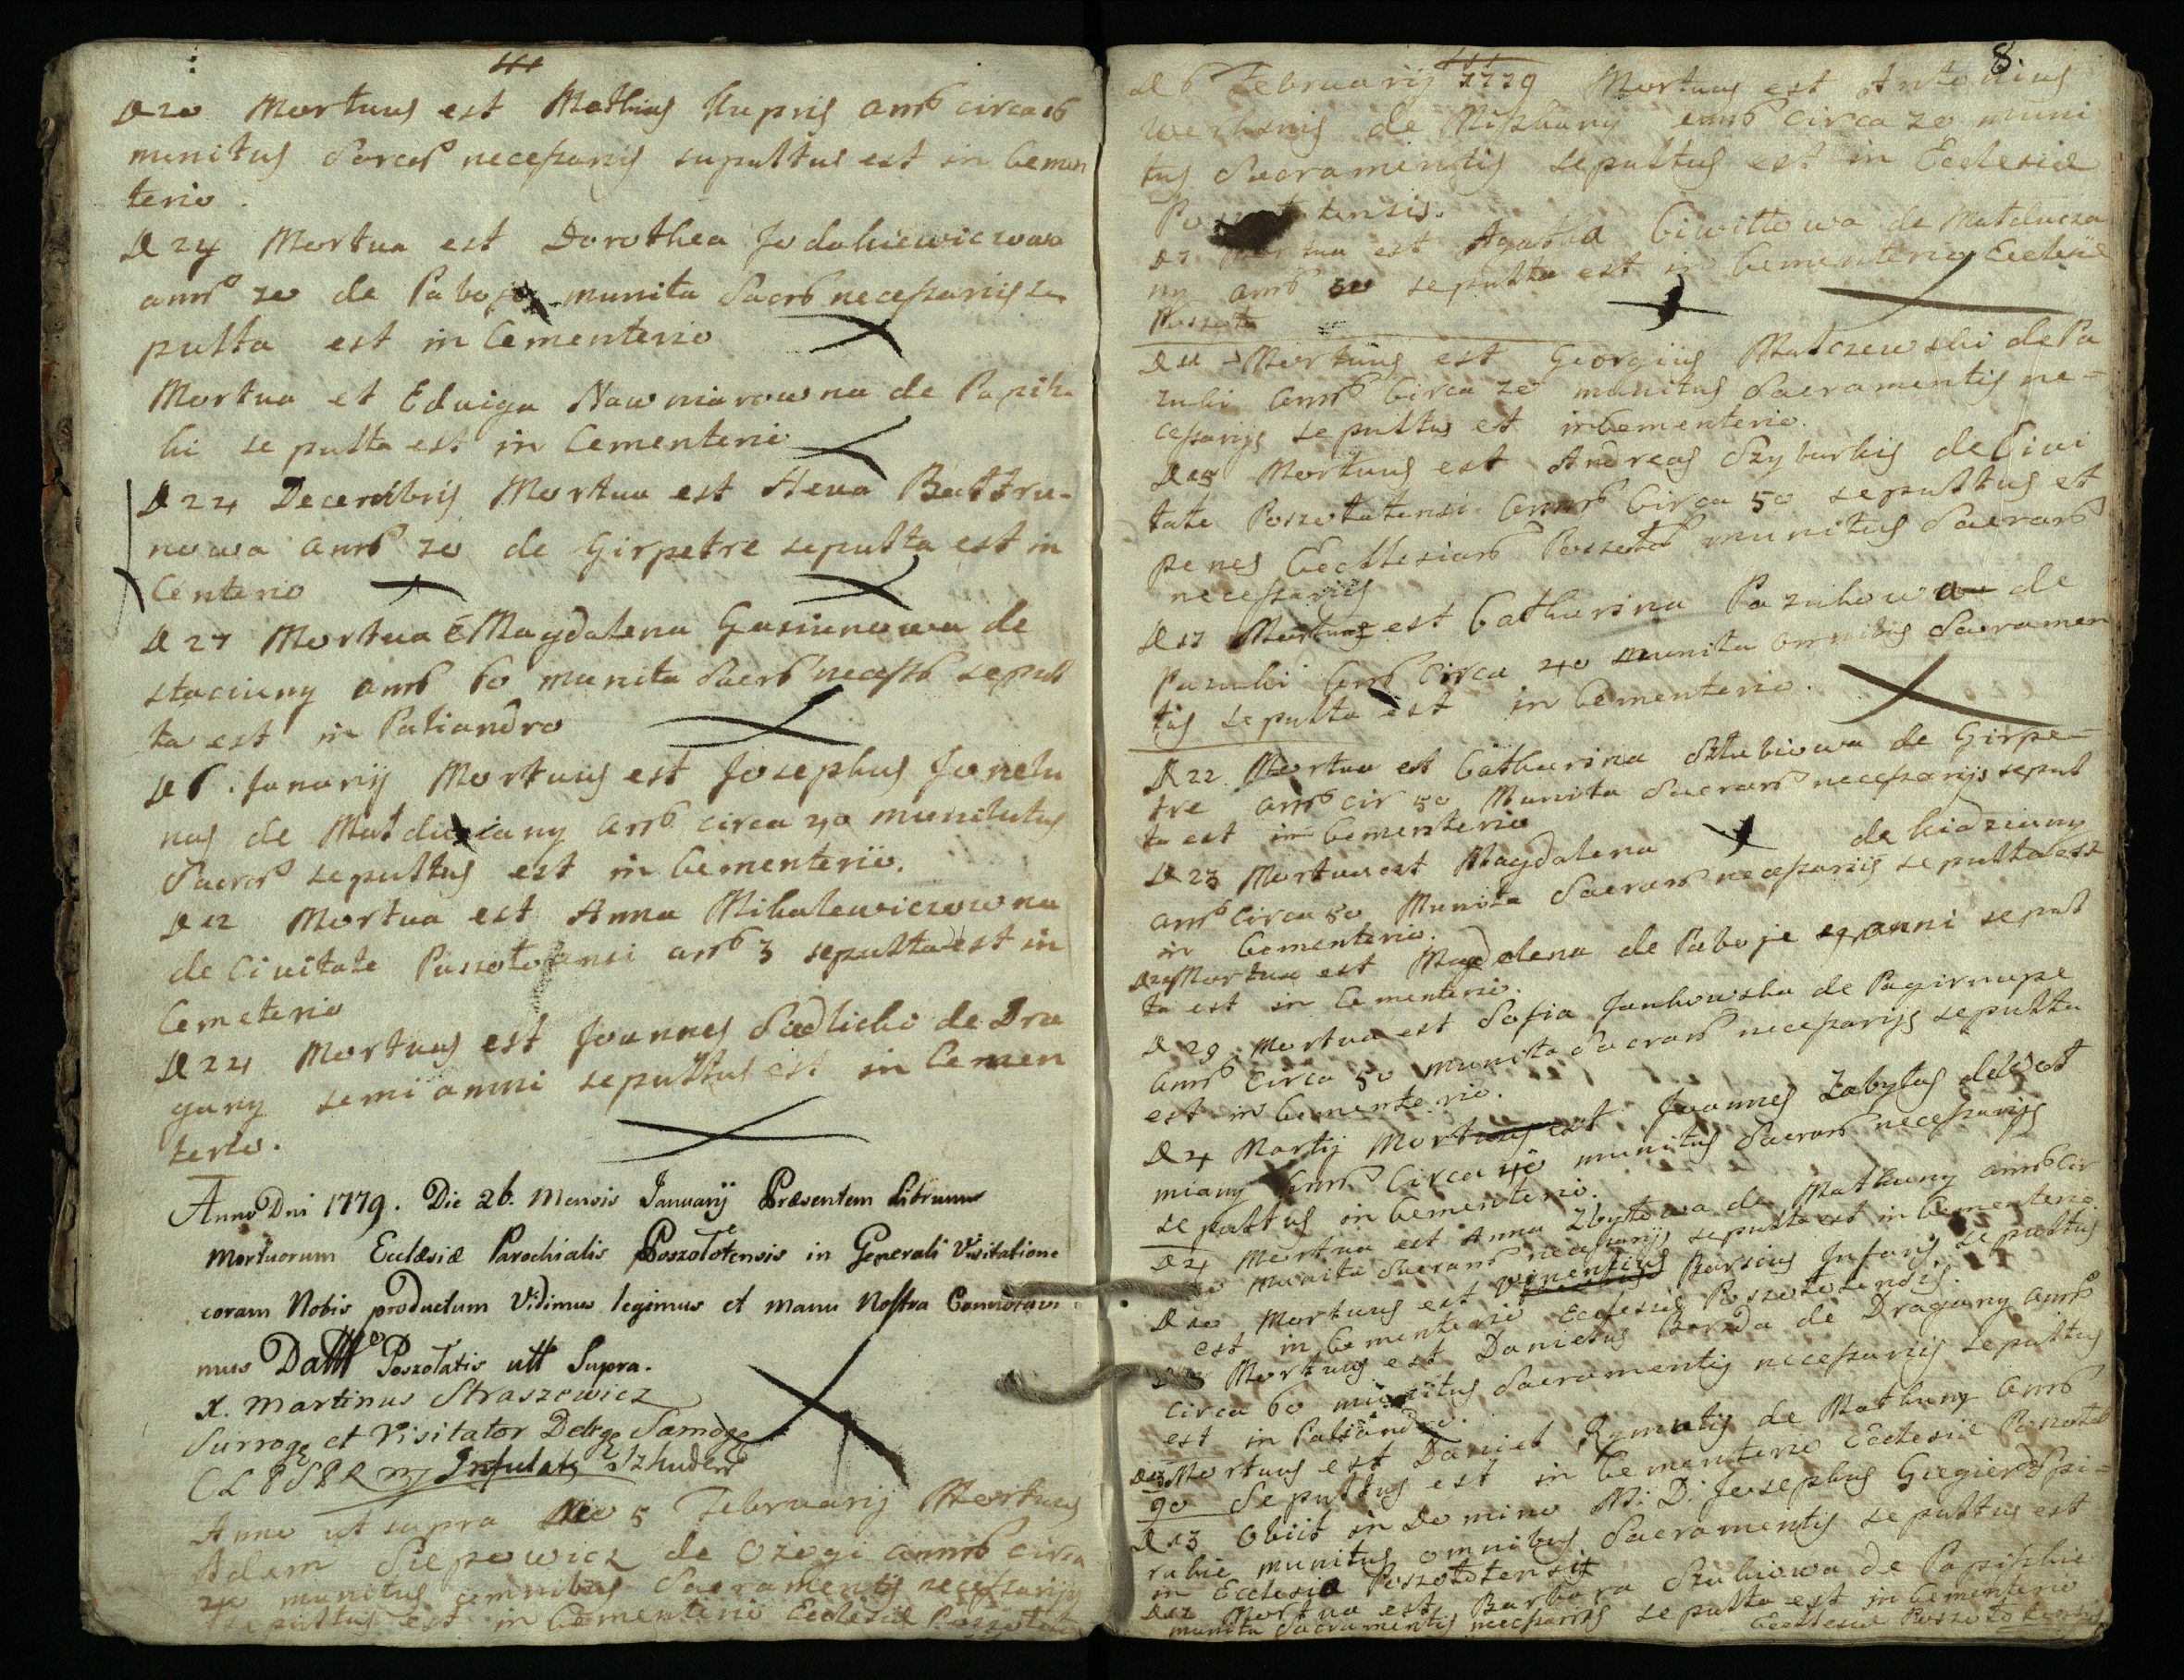 D 20 Mortuus est Mathias Kupris annõ circa 16
munitus Sacrõ necessarijs supultus est in Cemen
terio.
D 24 Mortua est Dorothea Jodakiewiczowa
annõ 70 de Paboje munita Sacrõ necessarijs se
pulta est in Cementerio
Mortua et Eduiga Nawniarowna de Papik
ki sepulta est in Cementerio
D 24 Decembris Mortua est Hewa Baltru-
nowa annõ 70 de Girpetre sepulta est in
Centerio
D 27 Mortua E Magdalena Gasiunowa de
staciuny annõ 60 munita Sacrõ necessõ sepul
ta est in Paliandro
D 6. Januarij Mortuus est Josephus Jonelu
nas de Matdu iany annõ circa 40 munitutus
Sacrõ sepultus est in Cementerio.
D 12 Mortua est Anna Mikalewiczowna
de Ciuitate Poszotatensi annõ 3 sepulta est in
Cemeterio
D 24 Mortuus est Joannes Sadlicki de Dra
guny semi anni sepultus est in Cemen
terio.
Anno Dni 1779. Die 26. Mensis Januarij Præsentem Librum
Mortuorum Ecclesiæ Parochialis Poszolotensis in Generali Visitatione
coram Nobis productum Vidimus legimus et manu Nostra Connotavi
mus Datt Poszolatis utt Supra.
X. Martinus Straszewicz
Surroge et Visitator Delge Samoge
Infulatg Szkuden
Anno ut supra Die 5 Februarij Mortuus
Adam Siepowicz de Ozogi annõ circa
70 munitus omnibus Sacramentis necessarijs
sepultus est in Cementerio Ecclesiæ Poszolot
8.
D 6 Februarij 1779 Mortuus est Antonius
de Miszkuny annõ circa 70 muni
tus Sacramentis sepultus est in Ecclesiæ
D 7 Mortua est Agatha Ciwillowa de Matelucza
ny annõ 50 sepulta est in Cementerio Ecclesiæ
Poszolo
D 11 Mortuus est Georgius Malczewski de Pa
zuki annõ circa 70 munitus Sacramentis ne=
cessarijs sepultus est in Cementerio.
D 15 Mortuus est Andreas Szyburkis de Ciui
tate Poszolatensi annõ circa 50 sepultus et
penes Ecclesiam Poszolõ munitus Sacramõ
necessarijs
D 17 Mortuus est Catharina Pazukowa de
Pazuki annõ circa 40 munita omnibus Sacramen
tis sepulta est in Cementerio.
D 22 Mortua est Catharina Stulbiowa de Girpe-
tre annõ cir 50 Munita Sacramõ necessarijs sepul
ta est in Cementerio
D 23 Mortua est Magdalena de Kidziuny
annõ circa 50 Munita Sacramõ necessarijs sepulta est
in Cementerio.
D 24 Mortua est Magdalena de Paboje anni sepul
ta est in Cementerio.
D 29 Mortua est Sofia Jankowska de Pagirnupe
annõ circa 50 munita Sacramõ necessarijs sepulta
est in Cementerio.
D 4 Martij Mortuus est Joannes Zabytas de Wot
miany annõ circa 40 munitus Sacramõ necessarijs
sepultus in Cementerio.
D 4 Mortua est Anna Zbytowa de Matkuny annõ cir
munita Sacramõ necessarijs sepulta est in Cementerio
D 10 Mortuus est Vincentius Barcius Infans, sepultus
est in Cementerio Ecclesiæ Poszolotensis.
Mortuus est Danielus Borda de Draguny annõ
circa 60 munitus Sacramentis necessarijs sepultus
est in Paliandro.
D 13 Mortuus est Daniel Rymutis de Matkuny annõ
90 Sepultus est in Cementerio Ecclesiæ Poszolot
D 13 Obiit in Domino M: D: Josephus Giegierd Spi=
rakie munitus omnibus Sacramentis sepultus est
in Ecclesia Poszolotensis
D 12 Mortua est Barbara Stukiowa de Papiszkie
munita Sacramentis necessarijs sepulta est in Cementerio
Ecclesiæ Poszolotensis